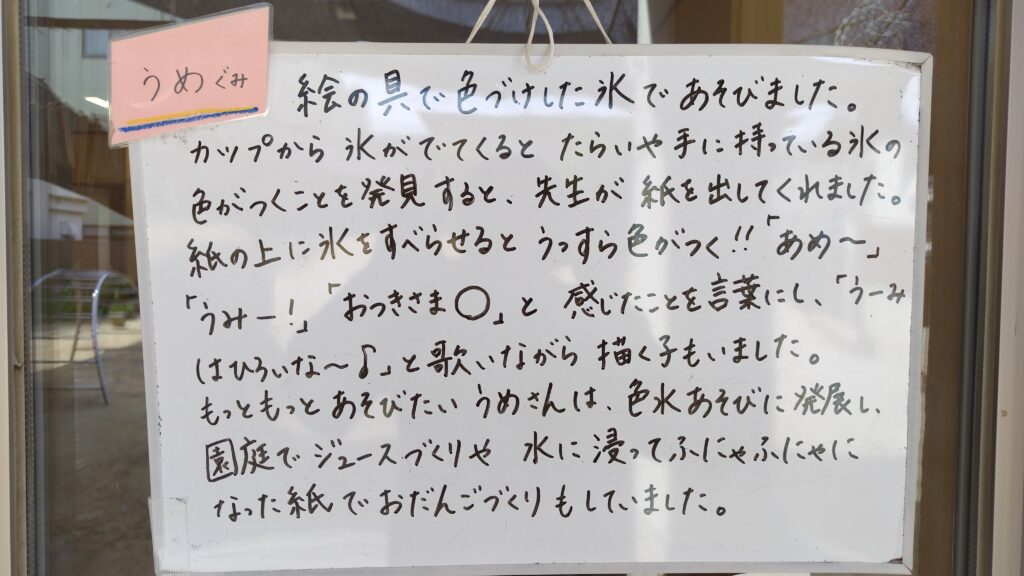 うめぐみ
絵の具で色づけした氷であそびました。
カップから氷がでてくると たらいや手に持っている氷の
色がつくことを発見すると、先生が紙を出してくれました。
紙の上に氷をすべらせると うっすら色がつく!!「あめ〜」
「うみー!」「おつきさま〇」と 感じたことを言葉にし、「うーみ
はひろいな〜♪」と歌いながら 描く子もいました。
もっともっとあそびたいうめさんは、色水あそびに発展し、
園庭でジュースづくりや 水に浸ってふにゃふにゃに
なった紙でおだんごづくりもしていました。